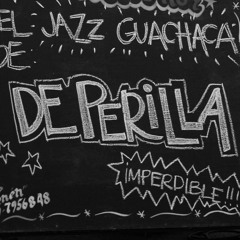 EL JAZZ GUACHACA
DE
DE PERILLA
IMPERDIBLE!!!
7956848